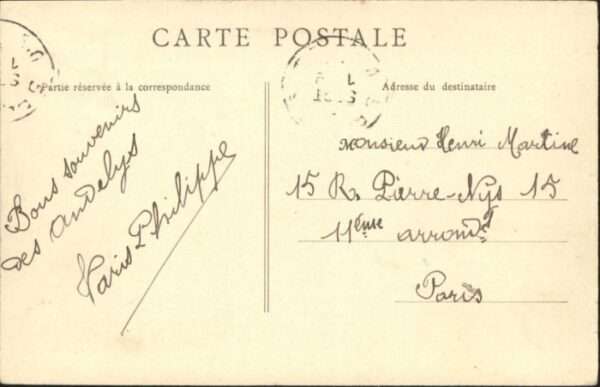 CARTE POSTALE
Partie réservée à la correspondance
Adresse du destinataire
Bons souvenirs
des Andelys
Philippe
Monsieur Henri Martine
15 R. Pierre-Nys 15
11ème arrondt
Paris